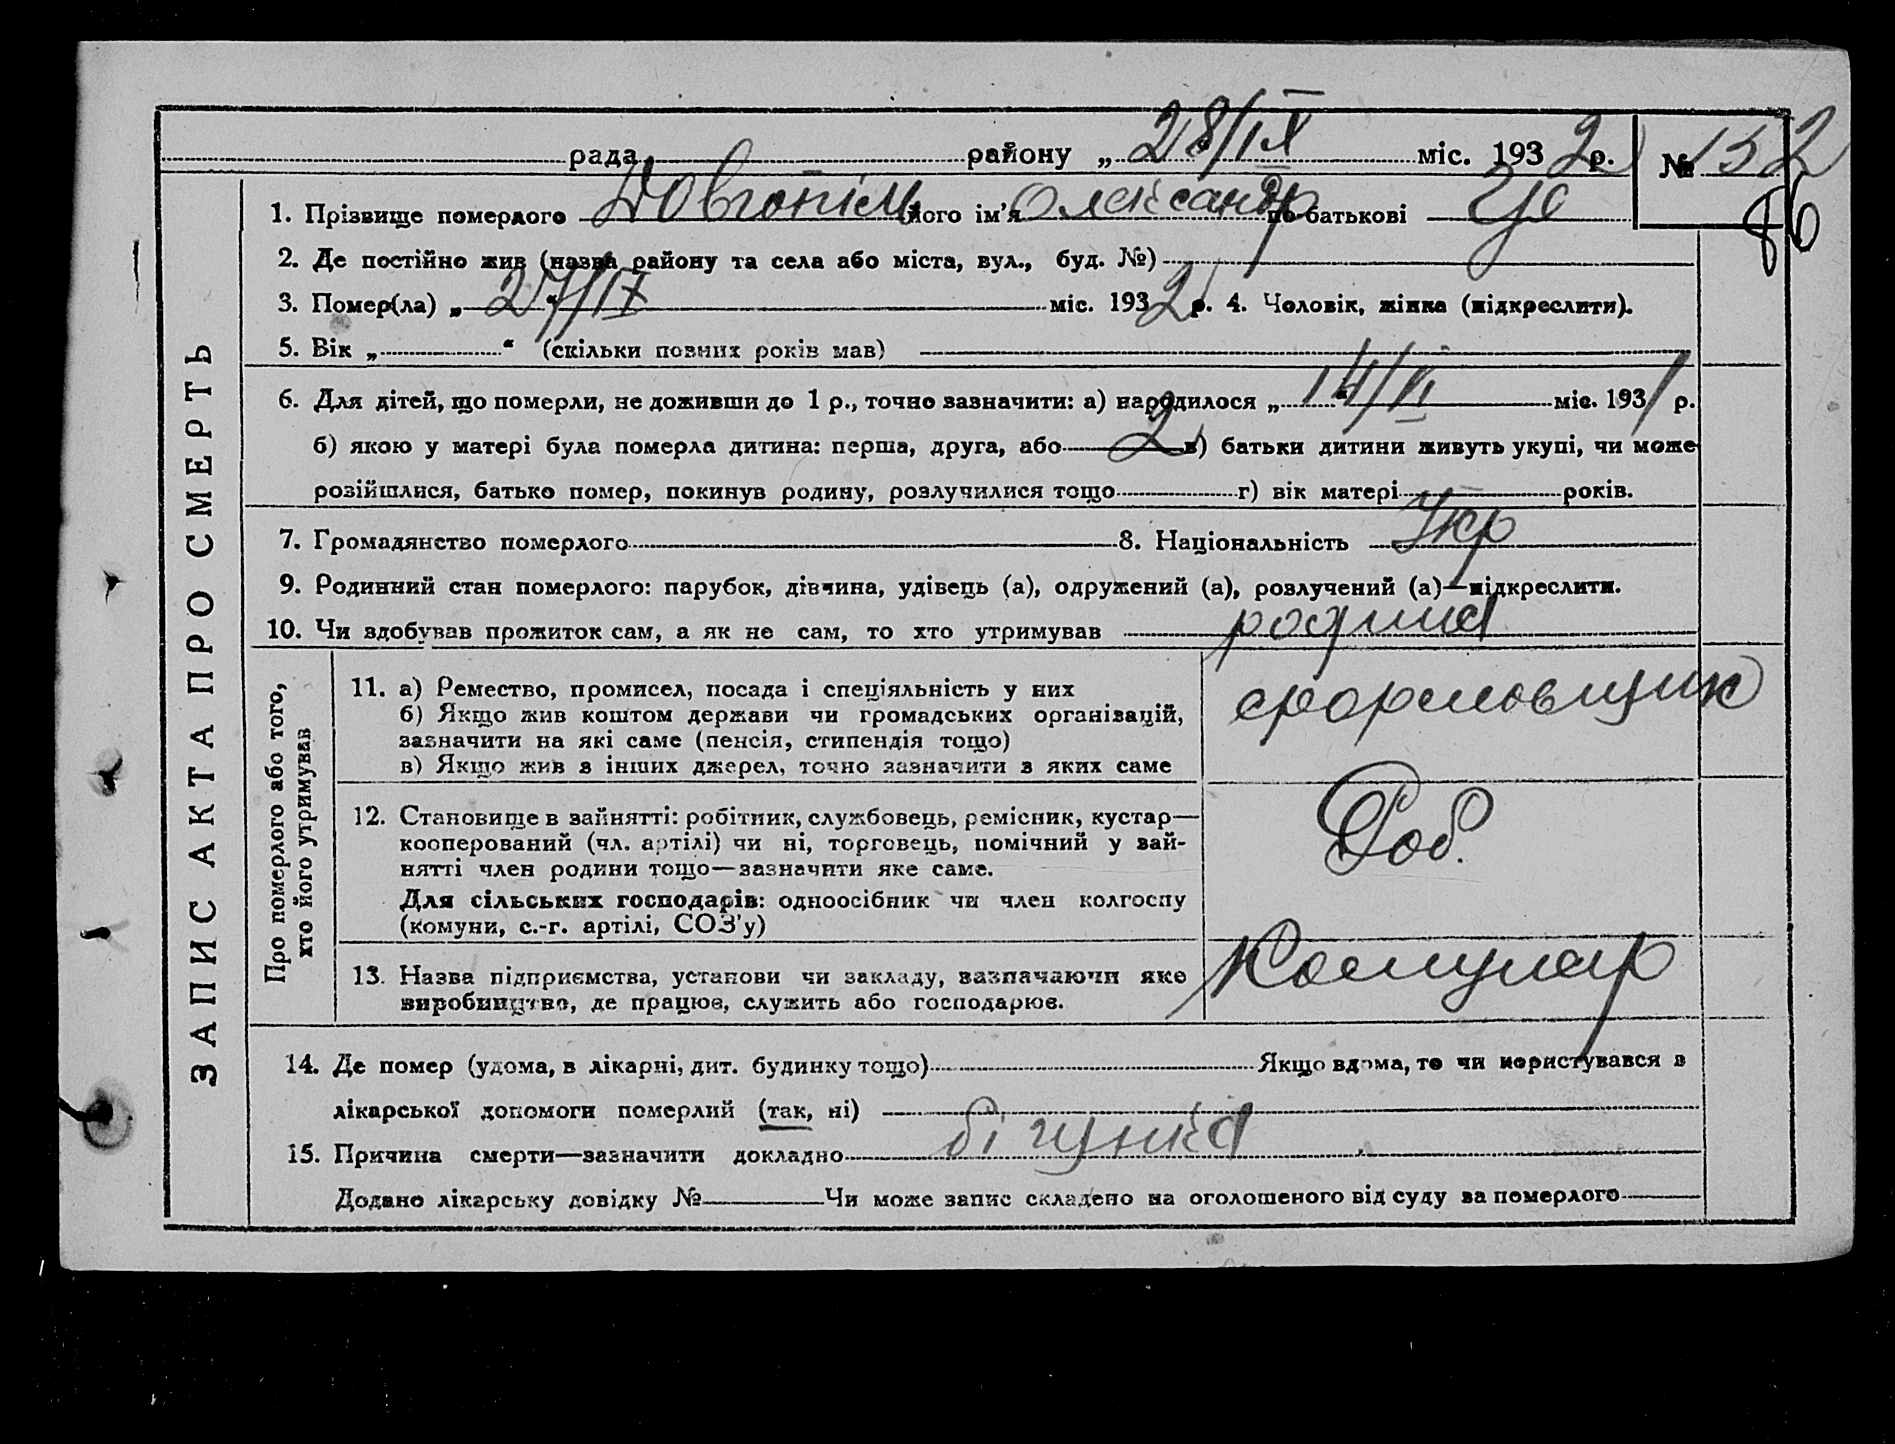 рада району „ 28/IX міс. 1932 р. № 132
86
1. Прізвище померлого Довгопіл його ім'я Олександр по батькові
2. Де постійно жив (назва району та села або міста, вул., буд. №)
3. Помер(ла) „ 27/IX “ міс. 1932 р. 4. Чоловік, жінка (підкреслити).
5. Вік „ “ (скільки повних років мав)
6. Для дітей, що померли, не доживши до 1 р., точно зазначити: а) народилося „ 14/VI міс. 1931 р.
б) якою у матері була померла дитина: перша, друга, або 2 в) батьки дитини живуть укупі, чи може
розійшлися, батько помер, покинув родину, розлучилися тощо г) вік матері років.
7. Громадянство померлого 8. Національність Укр
9. Родинний стан померлого: парубок, дівчина, удівець (а), одружений (а), розлучений (а)—підкреслити.
10. Чи здобував прожиток сам, а як не сам, то хто утримував родина
ЗАПИС АКТА ПРО СМЕРТЬ
Про померлого або того,
хто його утримував
11. а) Ремество, промисел, посада і спеціяльність у них
б) Якщо жив коштом держави чи громадських організацій,
зазначити на які саме (пенсія, стипендія тощо)
в) Якщо жив з інших джерел, точно зазначити з яких саме
формовщик
12. Становище в зайнятті: робітник, службовець, ремісник, кустар—
кооперований (чл. артілі) чи ні, торговець, помічний у зай-
нятті член родини тощо—зазначити яке саме.
Для сільських господарів: одноосібник чи член колгоспу
(комуни, с.-г. артілі, СОЗ'у)
Роб.
13. Назва підприємства, установи чи закладу, зазначаючи яке
виробництво, де працює, служить або господарює.
Комунар
14. Де помер (удома, в лікарні, дит. будинку тощо) Якщо вдома, то чи користувався з
лікарської допомоги померлий (так, ні)
15. Причина смерти—зазначити докладно бігунка
Додано лікарську довідку № Чи може запис складено на оголошеного від суду за померлого